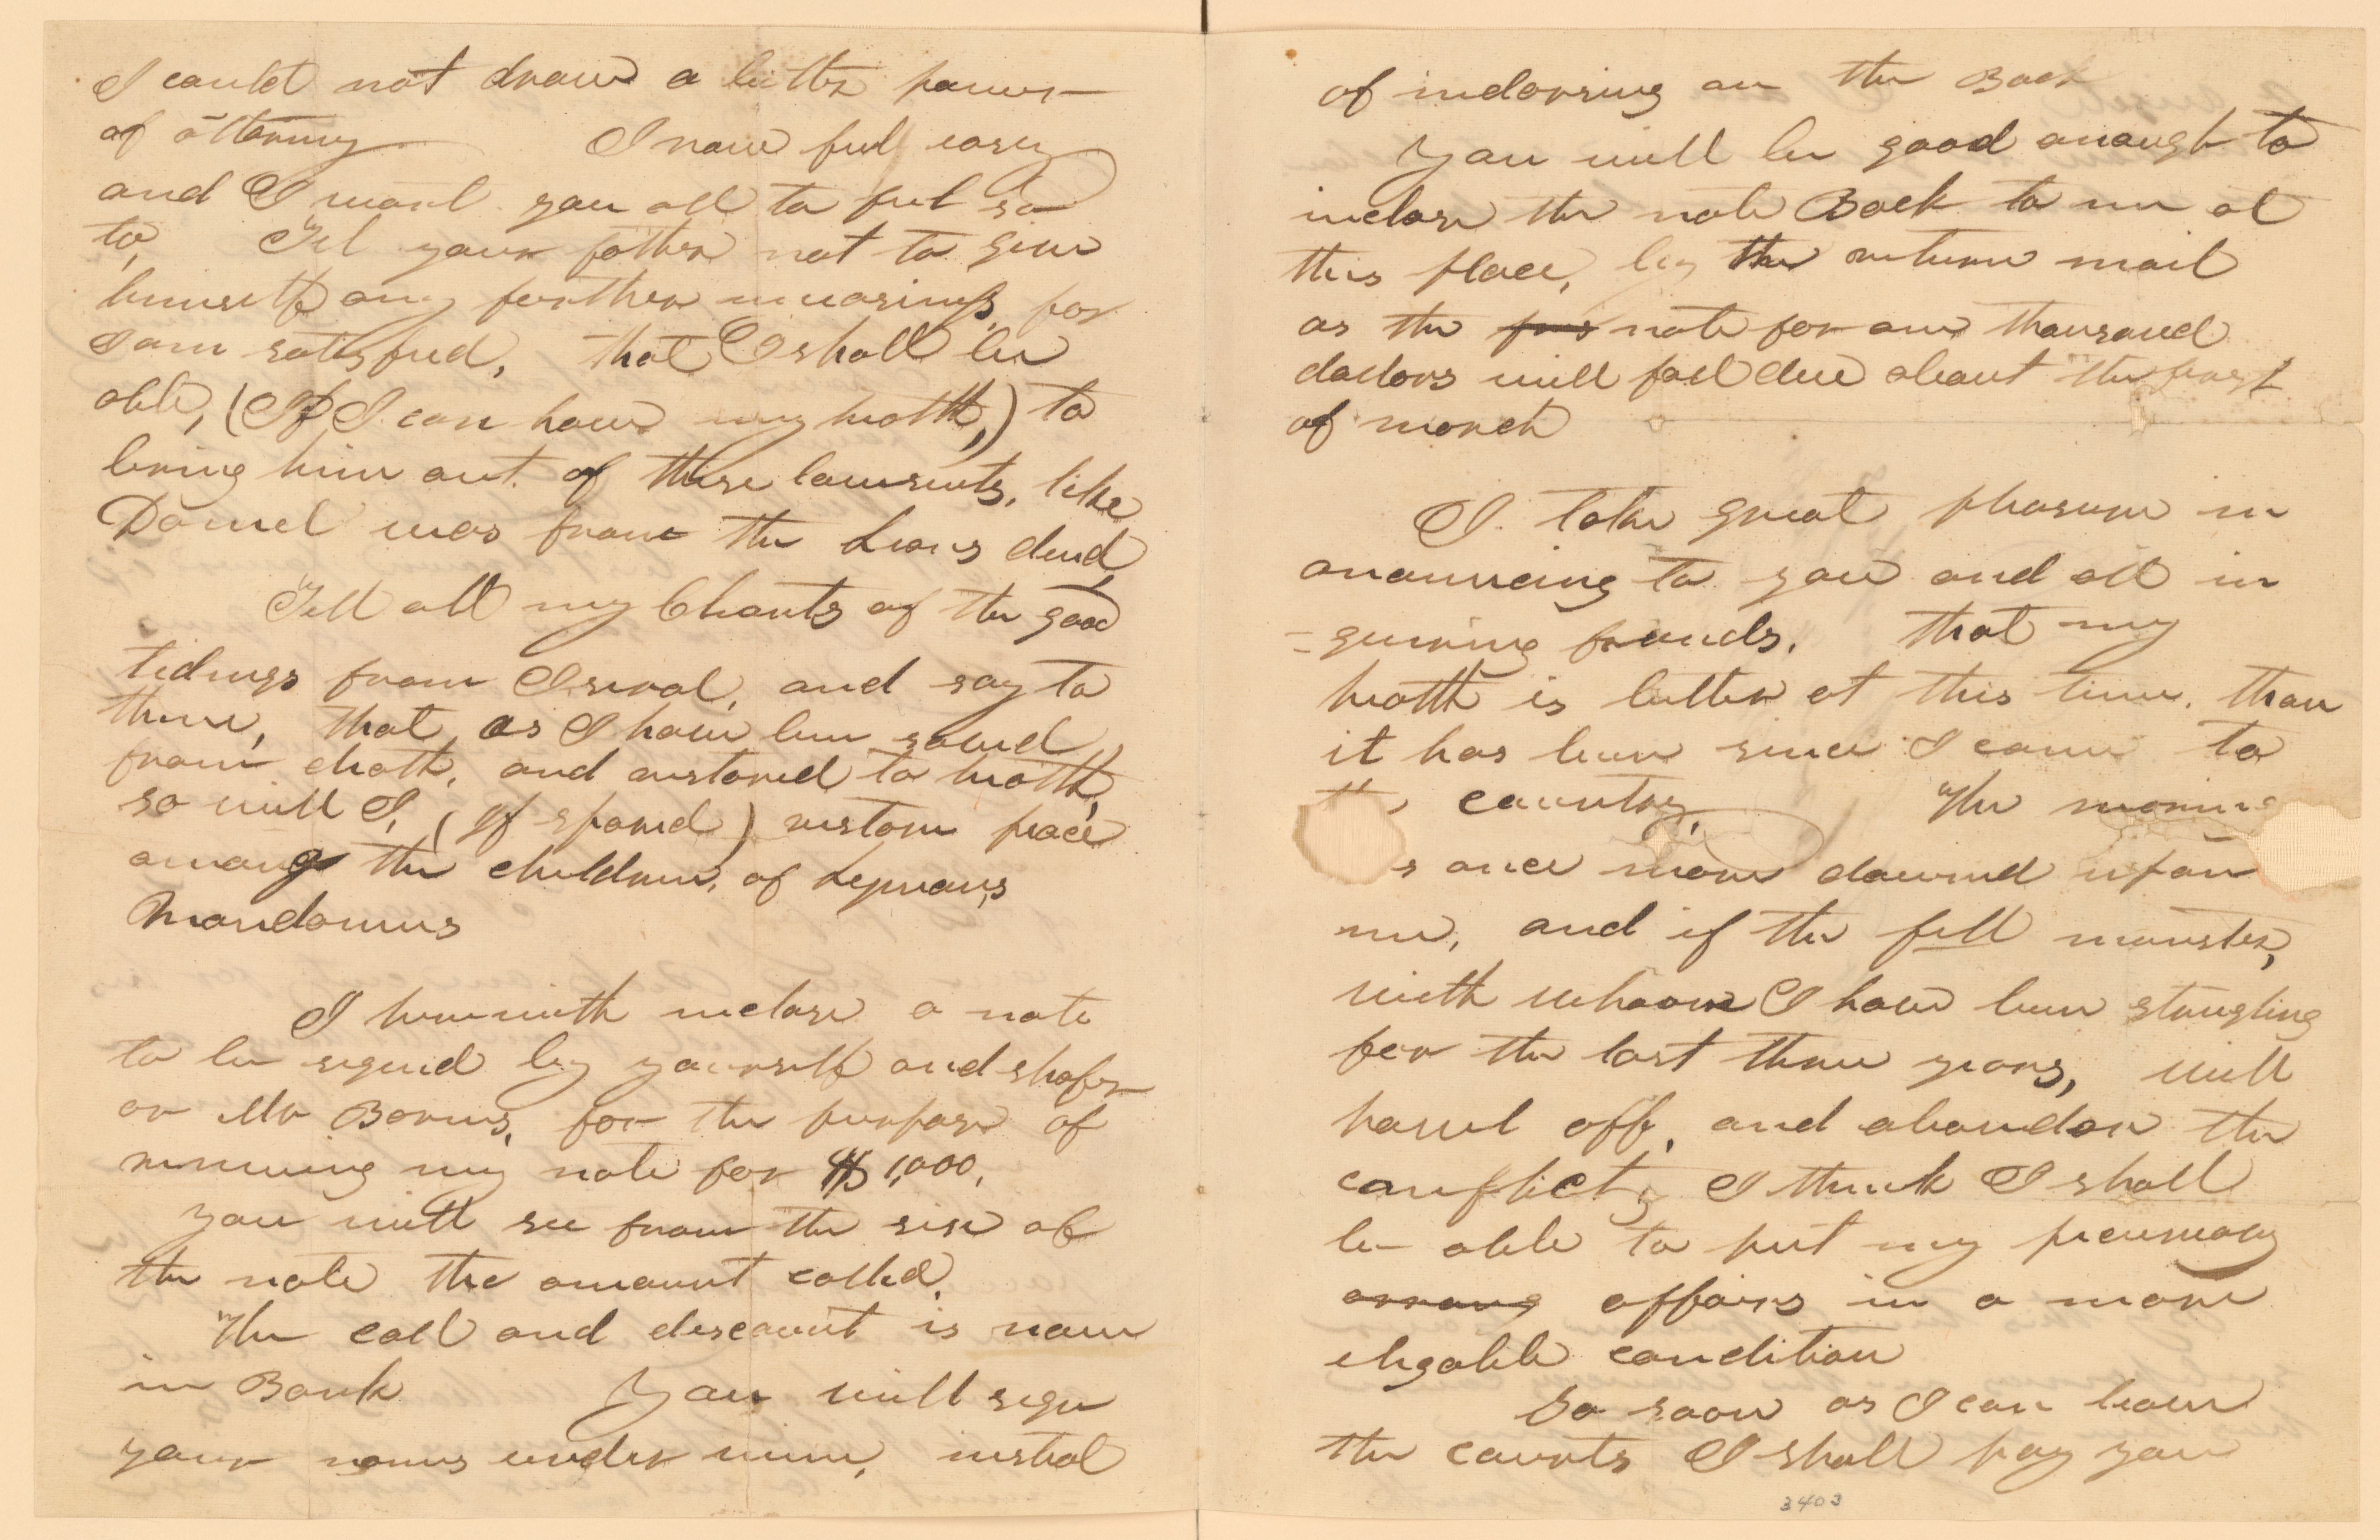 I could not draw a better power
of attorney I now feel easy
and I want you all to feel so
to, Tel your father not to give
himself any further uneasiness, for
I am satisfied, that I shall be
able, (If I can have my health,) to
bring him out of these lawsuits, like
Daniel was from the Lions dend,
Tell all my Clients of the good
tidings from Iseral, and say to
them, that, as I have been saved
from death, and restored to health,
so will I, (If spared) restore peace
among the children, of Legreans,
Mandamus
I herewith inclose a note
to be signed by yourself and
or Mr for the purpose of
renewing my note for $1,000,
You will see from the sise of
the note the amount called,
The call and discount is now
in Bank You will sign
your names under mine, insted
of indorsing on the Back
You will be good enough to
inclose the note Back to me at
this place, by the return mail
as the note for one thousand
dollors will fall due about the first
of march
I take great pleasure in
anouncing to you and all in
-quiring friends, that my
health is better at this time, than
it has been since I came to
country, The
once more dawned upon
me, and if the fell monster,
with whoom I have been strugling
for the last three years, will
hawl off, and abandon the
conflict, I think I shall
be able to put my pecuniary
arrang affairs in a more
eligable condition
So soon as I can leave
the courts I shall pay you
3403